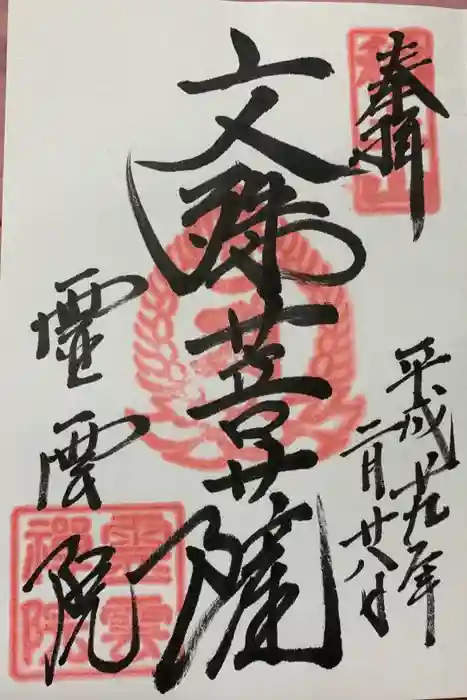 奉拝
平成十九年
二月廿八日
文殊菩薩
霊雲院
霊雲
禅院